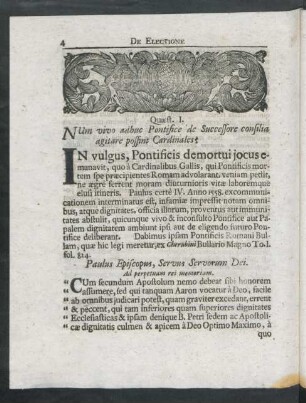 4 DE ELECTIONE
Quæst. I.
NUm vivo adhuc Pontifice de Successore consilia
agitare possint Cardinales?
IN vulgus, Pontificis demortui jocus e-
manavit, quo à Cardinalibus Gallis, qui Pontificis mor-
tem spe præcipientes Romam advolarant, veniam petiit,
ne ægre ferrent moram diuturnioris vitæ laboremque
ejus itineris. Paulus certè IV. Anno 1558. excommuni-
cationem interminatus est, infamiæ impressit notam omni-
bus, atque dignitates, officia illorum, proventus at immunita-
tes abstulit, quicunque vivo & inconsulto Pontifice aut Pa-
palem dignitatem ambiunt ipsi aut de eligendo futuro Pon-
tifice deliberant. Dabimus ipsam Pontificis Romani Bul-
lam, quæ hic legi meretur, ex Cherubini Bullario Magno To. I.
fol. 814.
Paulus Episcopus, Servus Servorum Dei.
Ad perpetuam rei memoriam.
" CUm secundum Apostolum nemo debeat sibi honorem
" assumere, sed qui tanquam Aaron vocatur à Deo, facile
" ab omnibus judicari potest, quam graviter excedant, errent
" & peccent, qui tam inferiores quam superiores dignitates
" Ecclesiasticas & ipsam denique B. Petri sedem ac Apostoli-
" cæ dignitatis culmen & apicem à Deo Optimo Maximo, à
quo